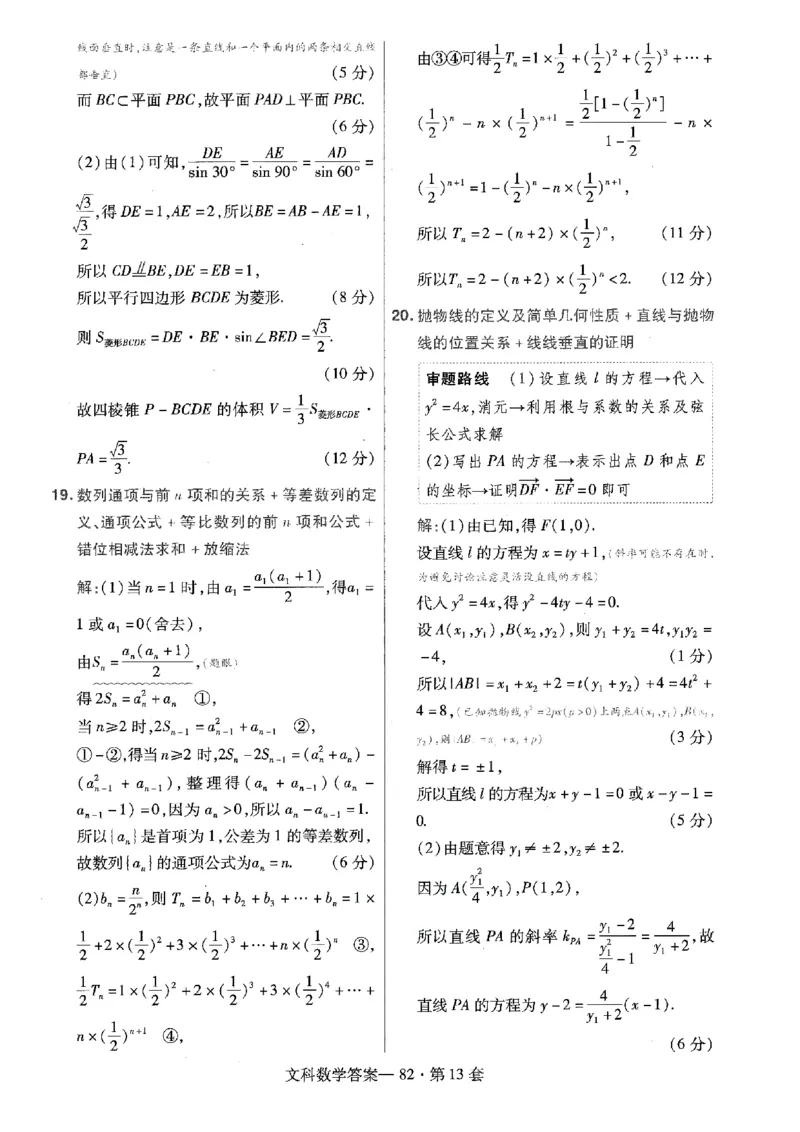 线面垂直时,注意是一条直线和一个平面内的两条相交直线
都垂直) (5 分)
而 BC⊂平面 PBC,故平面 PAD⊥平面 PBC.
(6 分)
(2)由(1)可知,DE/sin 30° = AE/sin 90° = AD/sin 60° =
√3/(√3/2),得 DE=1,AE=2,所以BE=AB-AE=1,
所以 CD∥BE,DE=EB=1,
所以平行四边形 BCDE 为菱形. (8 分)
则 S菱形BCDE=DE·BE·sin∠BED=√3/2.
(10 分)
故四棱锥 P-BCDE 的体积 V=1/3 S菱形BCDE·
PA=√3/3. (12 分)
19. 数列通项与前 n 项和的关系+等差数列的定
义、通项公式+等比数列的前 n 项和公式+
错位相减法求和+放缩法
解:(1)当 n=1 时,由 a₁=a₁(a₁+1)/2,得a₁=
1 或 a₁=0(舍去),
由Sₙ=aₙ(aₙ+1)/2,(题眼)
得 2Sₙ=aₙ²+aₙ ①,
当 n≥2 时,2Sₙ₋₁=aₙ₋₁²+aₙ₋₁ ②,
①-②,得当 n≥2 时,2Sₙ-2Sₙ₋₁=(aₙ²+aₙ)-
(aₙ₋₁²+aₙ₋₁),整理得(aₙ+aₙ₋₁)(aₙ-
aₙ₋₁-1)=0,因为 aₙ>0,所以 aₙ-aₙ₋₁=1.
所以{aₙ}是首项为 1,公差为 1 的等差数列,
故数列{aₙ}的通项公式为aₙ=n. (6 分)
(2)bₙ=n/2ⁿ,则 Tₙ=b₁+b₂+b₃+⋯+bₙ=1×
1/2+2×(1/2)²+3×(1/2)³+⋯+n×(1/2)ⁿ ③,
1/2 Tₙ=1×(1/2)²+2×(1/2)³+3×(1/2)⁴+⋯+
n×(1/2)ⁿ⁺¹ ④,
由③④可得1/2 Tₙ=1×1/2+(1/2)²+(1/2)³+⋯+
(1/2)ⁿ-n×(1/2)ⁿ⁺¹=1/2[1-(1/2)ⁿ]/(1-1/2)-n×
(1/2)ⁿ⁺¹=1-(1/2)ⁿ-n×(1/2)ⁿ⁺¹,
所以 Tₙ=2-(n+2)×(1/2)ⁿ, (11 分)
所以Tₙ=2-(n+2)×(1/2)ⁿ<2. (12 分)
20. 抛物线的定义及简单几何性质+直线与抛物
线的位置关系+线线垂直的证明
审题路线 (1)设直线 l 的方程→代入
y²=4x,消元→利用根与系数的关系及弦
长公式求解
(2)写出 PA 的方程→表示出点 D 和点 E
的坐标→证明DF·EF=0 即可
解:(1)由已知,得 F(1,0).
设直线 l 的方程为 x=ty+1,(斜率可能不存在时,
为避免讨论注意灵活设直线的方程)
代入 y²=4x,得 y²-4ty-4=0.
设 A(x₁,y₁),B(x₂,y₂),则 y₁+y₂=4t,y₁y₂=
-4, (1 分)
所以|AB|=x₁+x₂+2=t(y₁+y₂)+4=4t²+
4=8,(已知抛物线 y²=2px(p>0)上两点A(x₁,y₁),B(x₂,
y₂),则|AB|=x₁+x₂+p) (3 分)
解得 t=±1,
所以直线 l 的方程为x+y-1=0 或 x-y-1=
0. (5 分)
(2)由题意得 y₁≠±2,y₂≠±2.
因为 A(y₁²/4,y₁),P(1,2),
所以直线 PA 的斜率 k_PA=(y₁-2)/(y₁²/4-1)=4/(y₁+2),故
直线 PA 的方程为 y-2=4/(y₁+2)(x-1).
(6 分)
文科数学答案—82·第 13 套